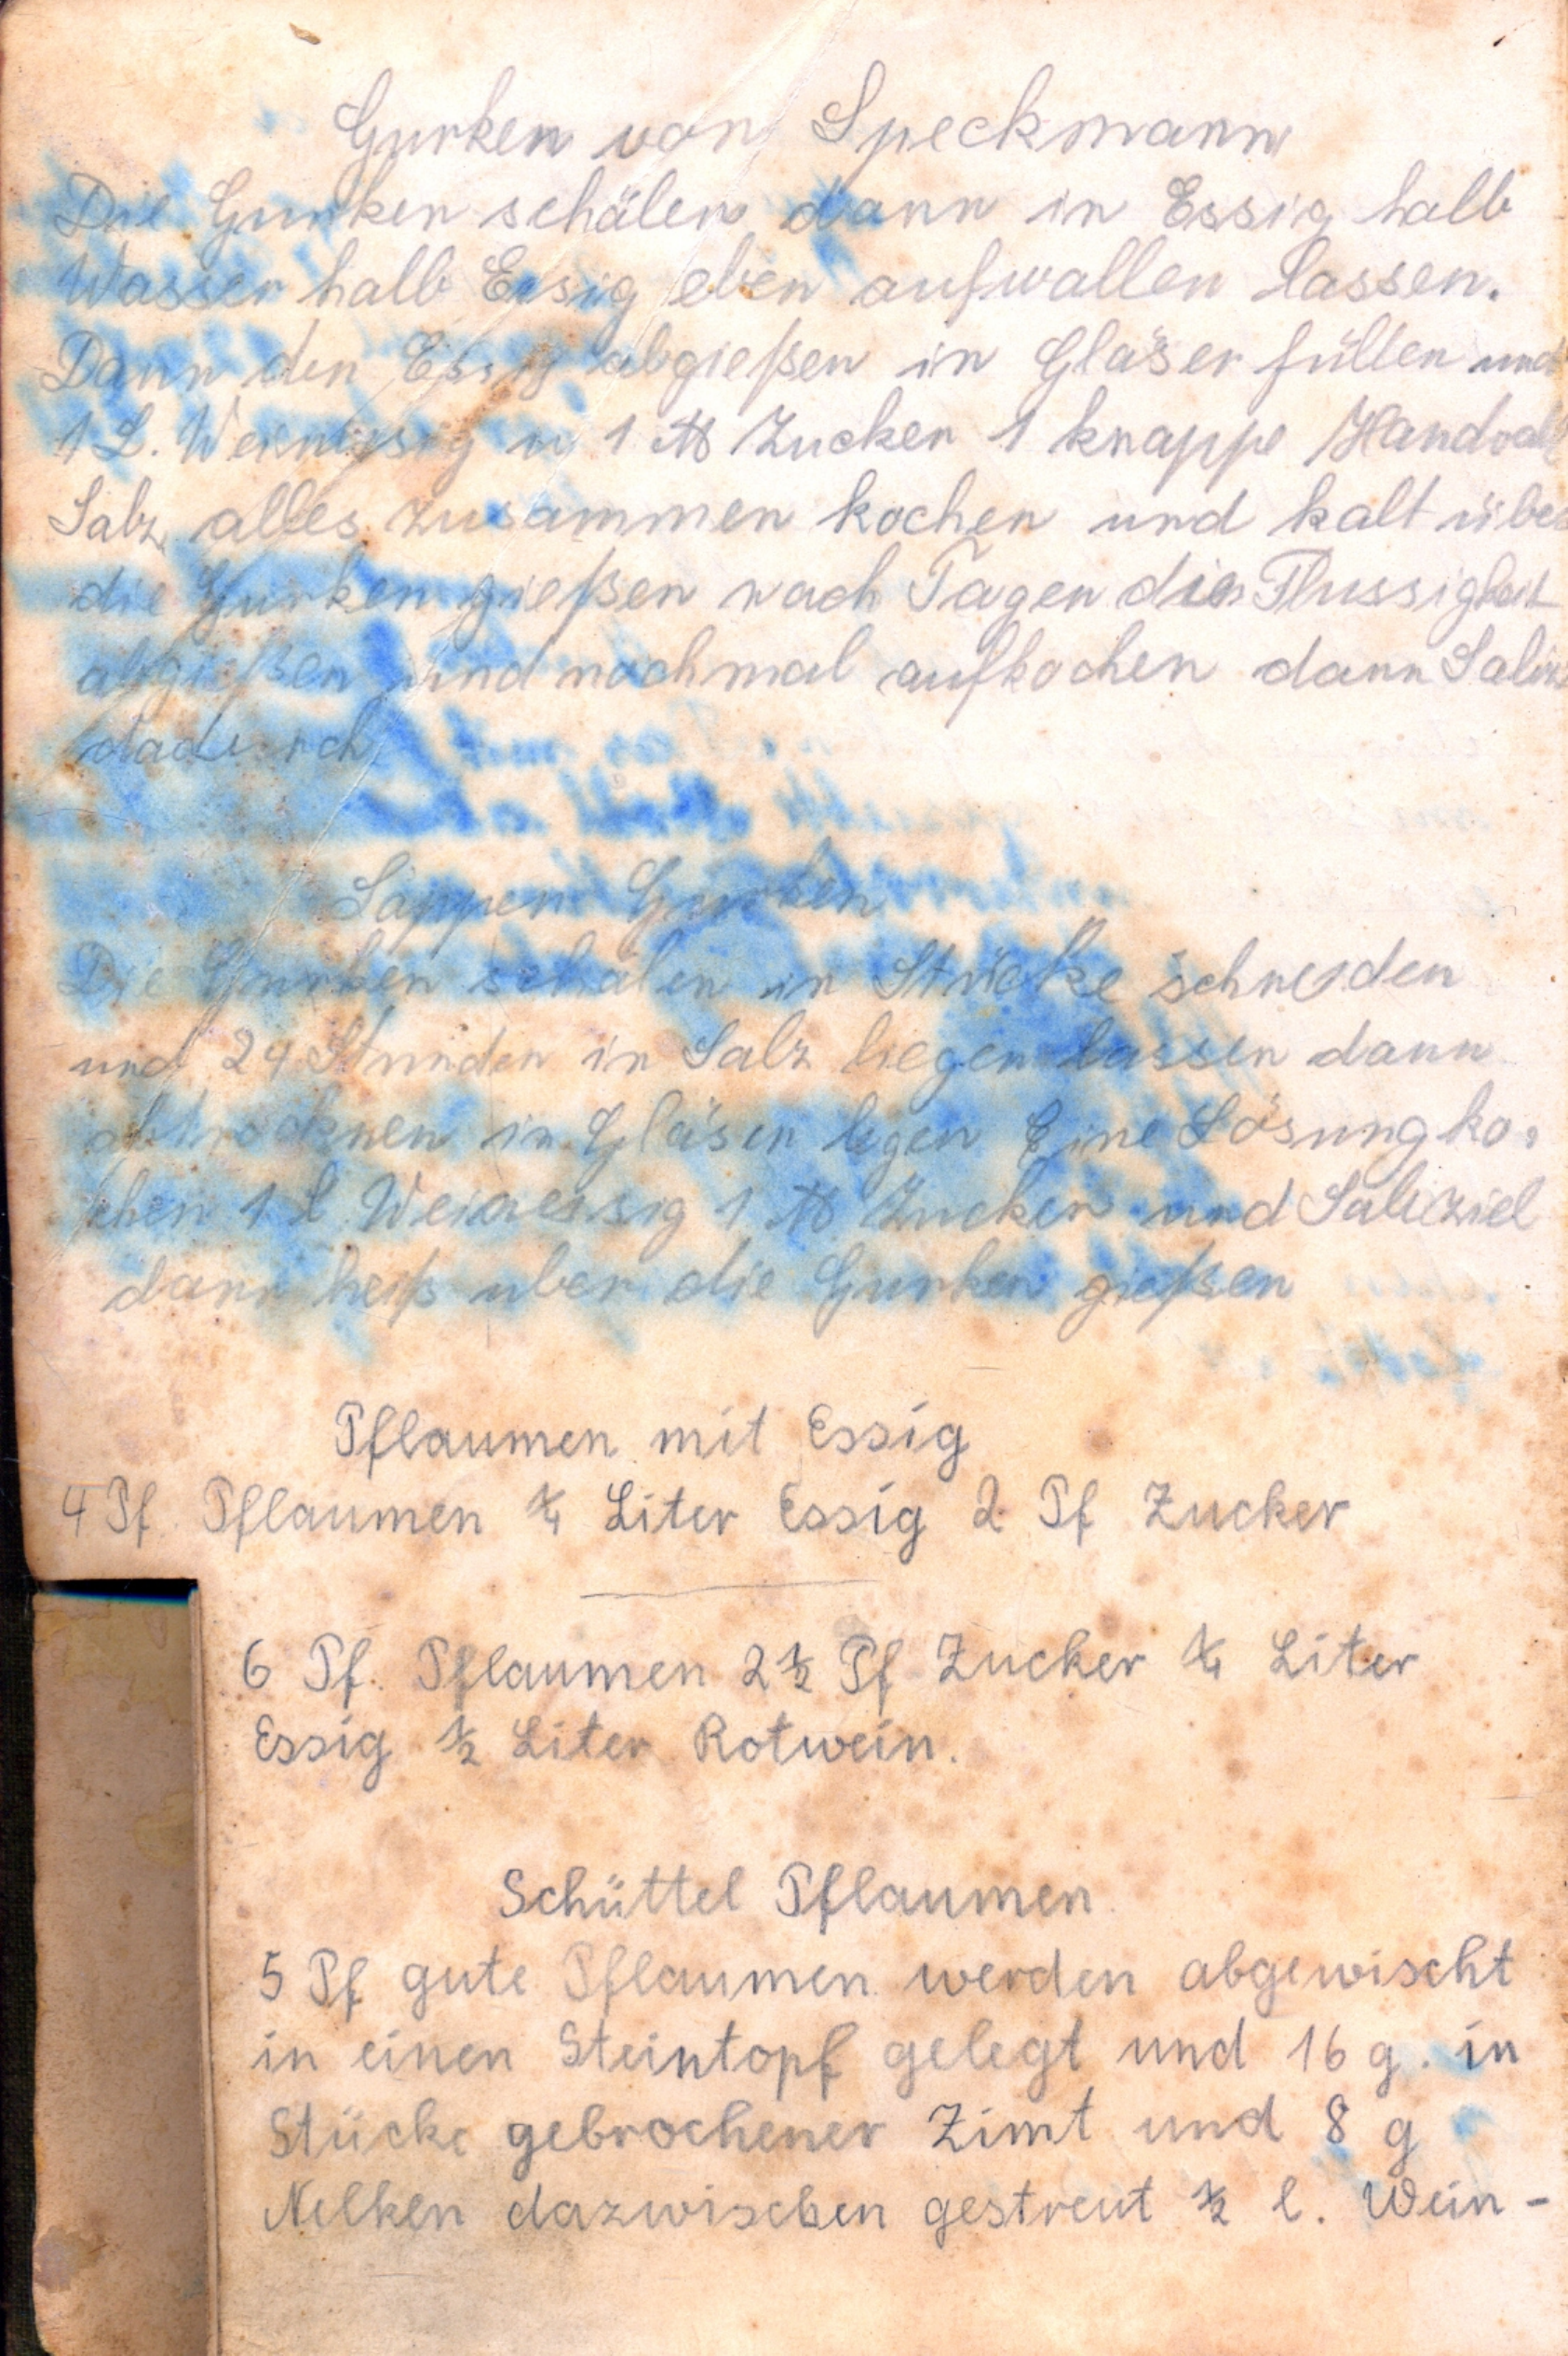 Gurken von Speckmann
Die Gurken schälen dann in Essig halb
Wasser halb Essig eben aufwallen lassen.
Dann den Essig abgießen in Gläser füllen und
1 L. Weinessig u 1 ℔ Zucker 1 knappe Handvoll
Salz alles zusammen kochen und kalt über
die Gurken gießen nach Tagen die Flussigkeit
abgießen und nochmal aufkochen dann Saliz
dadurch
Gurken
Die Gurken schälen in Stücke schneiden
und 24 Stunden in Salz liegen lassen dann
abtrocknen in Gläser legen Eine Lösung ko-
chen 1 L Weinessig 1 ℔ Zucker und Saliziel
dann heiß uber die Gurken gießen
Pflaumen mit Essig
4 Pf Pflaumen ¼ Liter Essig 2 Pf Zucker
6 Pf. Pflaumen 2½ Pf Zucker ¼ Liter
Essig ½ Liter Rotwein.
Schüttel Pflaumen
5 Pf gute Pflaumen werden abgewischt
in einen Steintopf gelegt und 16 g. in
Stücke gebrochener Zimt und 8 g
Nelken dazwischen gestreut ½ l. Wein-